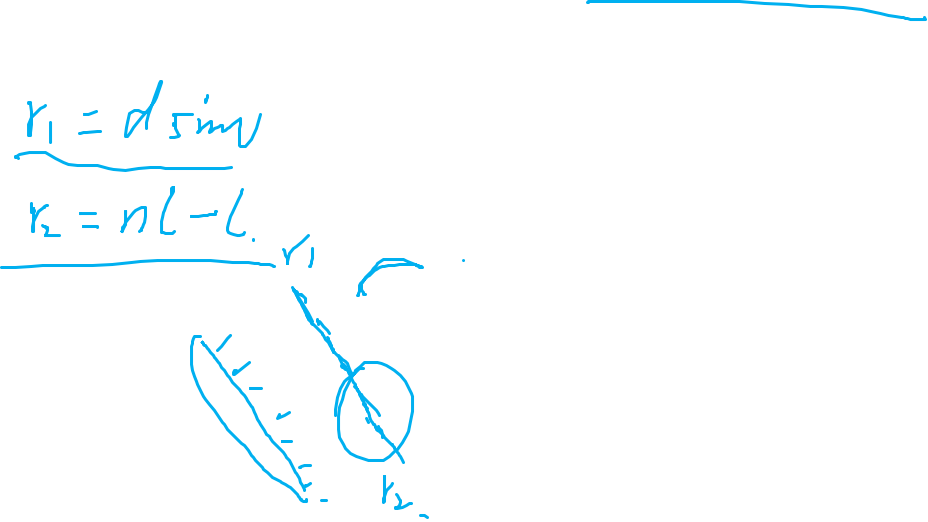 r₁ = d sinw
r₂ = nl - l.
r₁
r₂